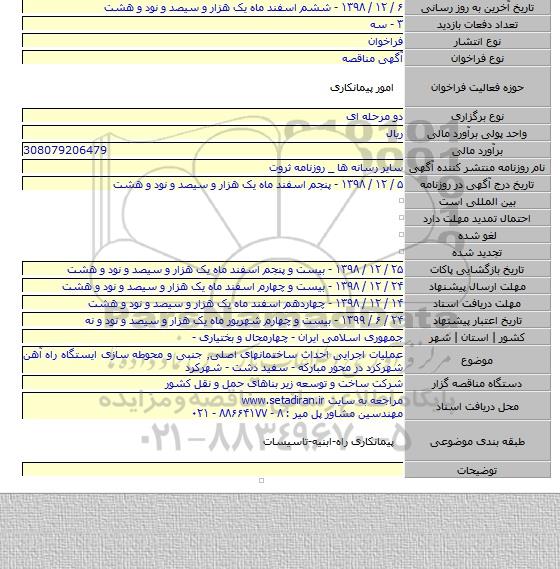 تاریخ آخرین به روز رسانی ۶ / ۱۲ / ۱۳۹۸ - ششم اسفند ماه یک هزار و سیصد و نود و هشت
تعداد دفعات بازدید ۳ - سه
نوع انتشار فراخوان
نوع فراخوان آگهی مناقصه
حوزه فعالیت فراخوان امور پیمانکاری
نوع برگزاری دو مرحله ای
واحد پولی برآورد مالی ریال
برآورد مالی 308079206479
نام روزنامه منتشر کننده آگهی سایر رسانه ها _ روزنامه ثروت
تاریخ درج آگهی در روزنامه ۵ / ۱۲ / ۱۳۹۸ - پنجم اسفند ماه یک هزار و سیصد و نود و هشت
بین المللی است
احتمال تمدید مهلت دارد
لغو شده
تجدید شده
تاریخ بازگشایی پاکات ۲۵ / ۱۲ / ۱۳۹۸ - بیست و پنجم اسفند ماه یک هزار و سیصد و نود و هشت
مهلت ارسال پیشنهاد ۲۴ / ۱۲ / ۱۳۹۸ - بیست و چهارم اسفند ماه یک هزار و سیصد و نود و هشت
مهلت دریافت اسناد ۱۴ / ۱۲ / ۱۳۹۸ - چهاردهم اسفند ماه یک هزار و سیصد و نود و هشت
تاریخ اعتبار پیشتهاد ۲۴ / ۶ / ۱۳۹۹ - بیست و چهارم شهریور ماه یک هزار و سیصد و نود و نه
کشور | استان | شهر جمهوری اسلامی ایران - چهارمحال و بختیاری -
موضوع عملیات اجرایی احداث ساختمانهای اصلی, جنبی و محوطه سازی ایستگاه راه آهن
شهرکرد در محور مبارکه - سفید دشت - شهرکرد
دستگاه مناقصه گزار شرکت ساخت و توسعه زیر بناهای حمل و نقل کشور
محل دریافت اسناد مراجعه به سایت www.setadiran.ir
مهندسین مشاور پل میر : ۸ - ۸۸۶۶۴۱۷۷ - ۰۲۱
طبقه بندی موضوعی پیمانکاری راه-ابنیه-تاسیسات
توضیحات
۰۲۱-۸۸۳۴۹۶۷۰-۵